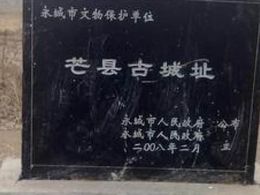 永城市文物保护单位
芒县古城址
永城市人民政府 公布
永城市人民政府 立
二00八年二月